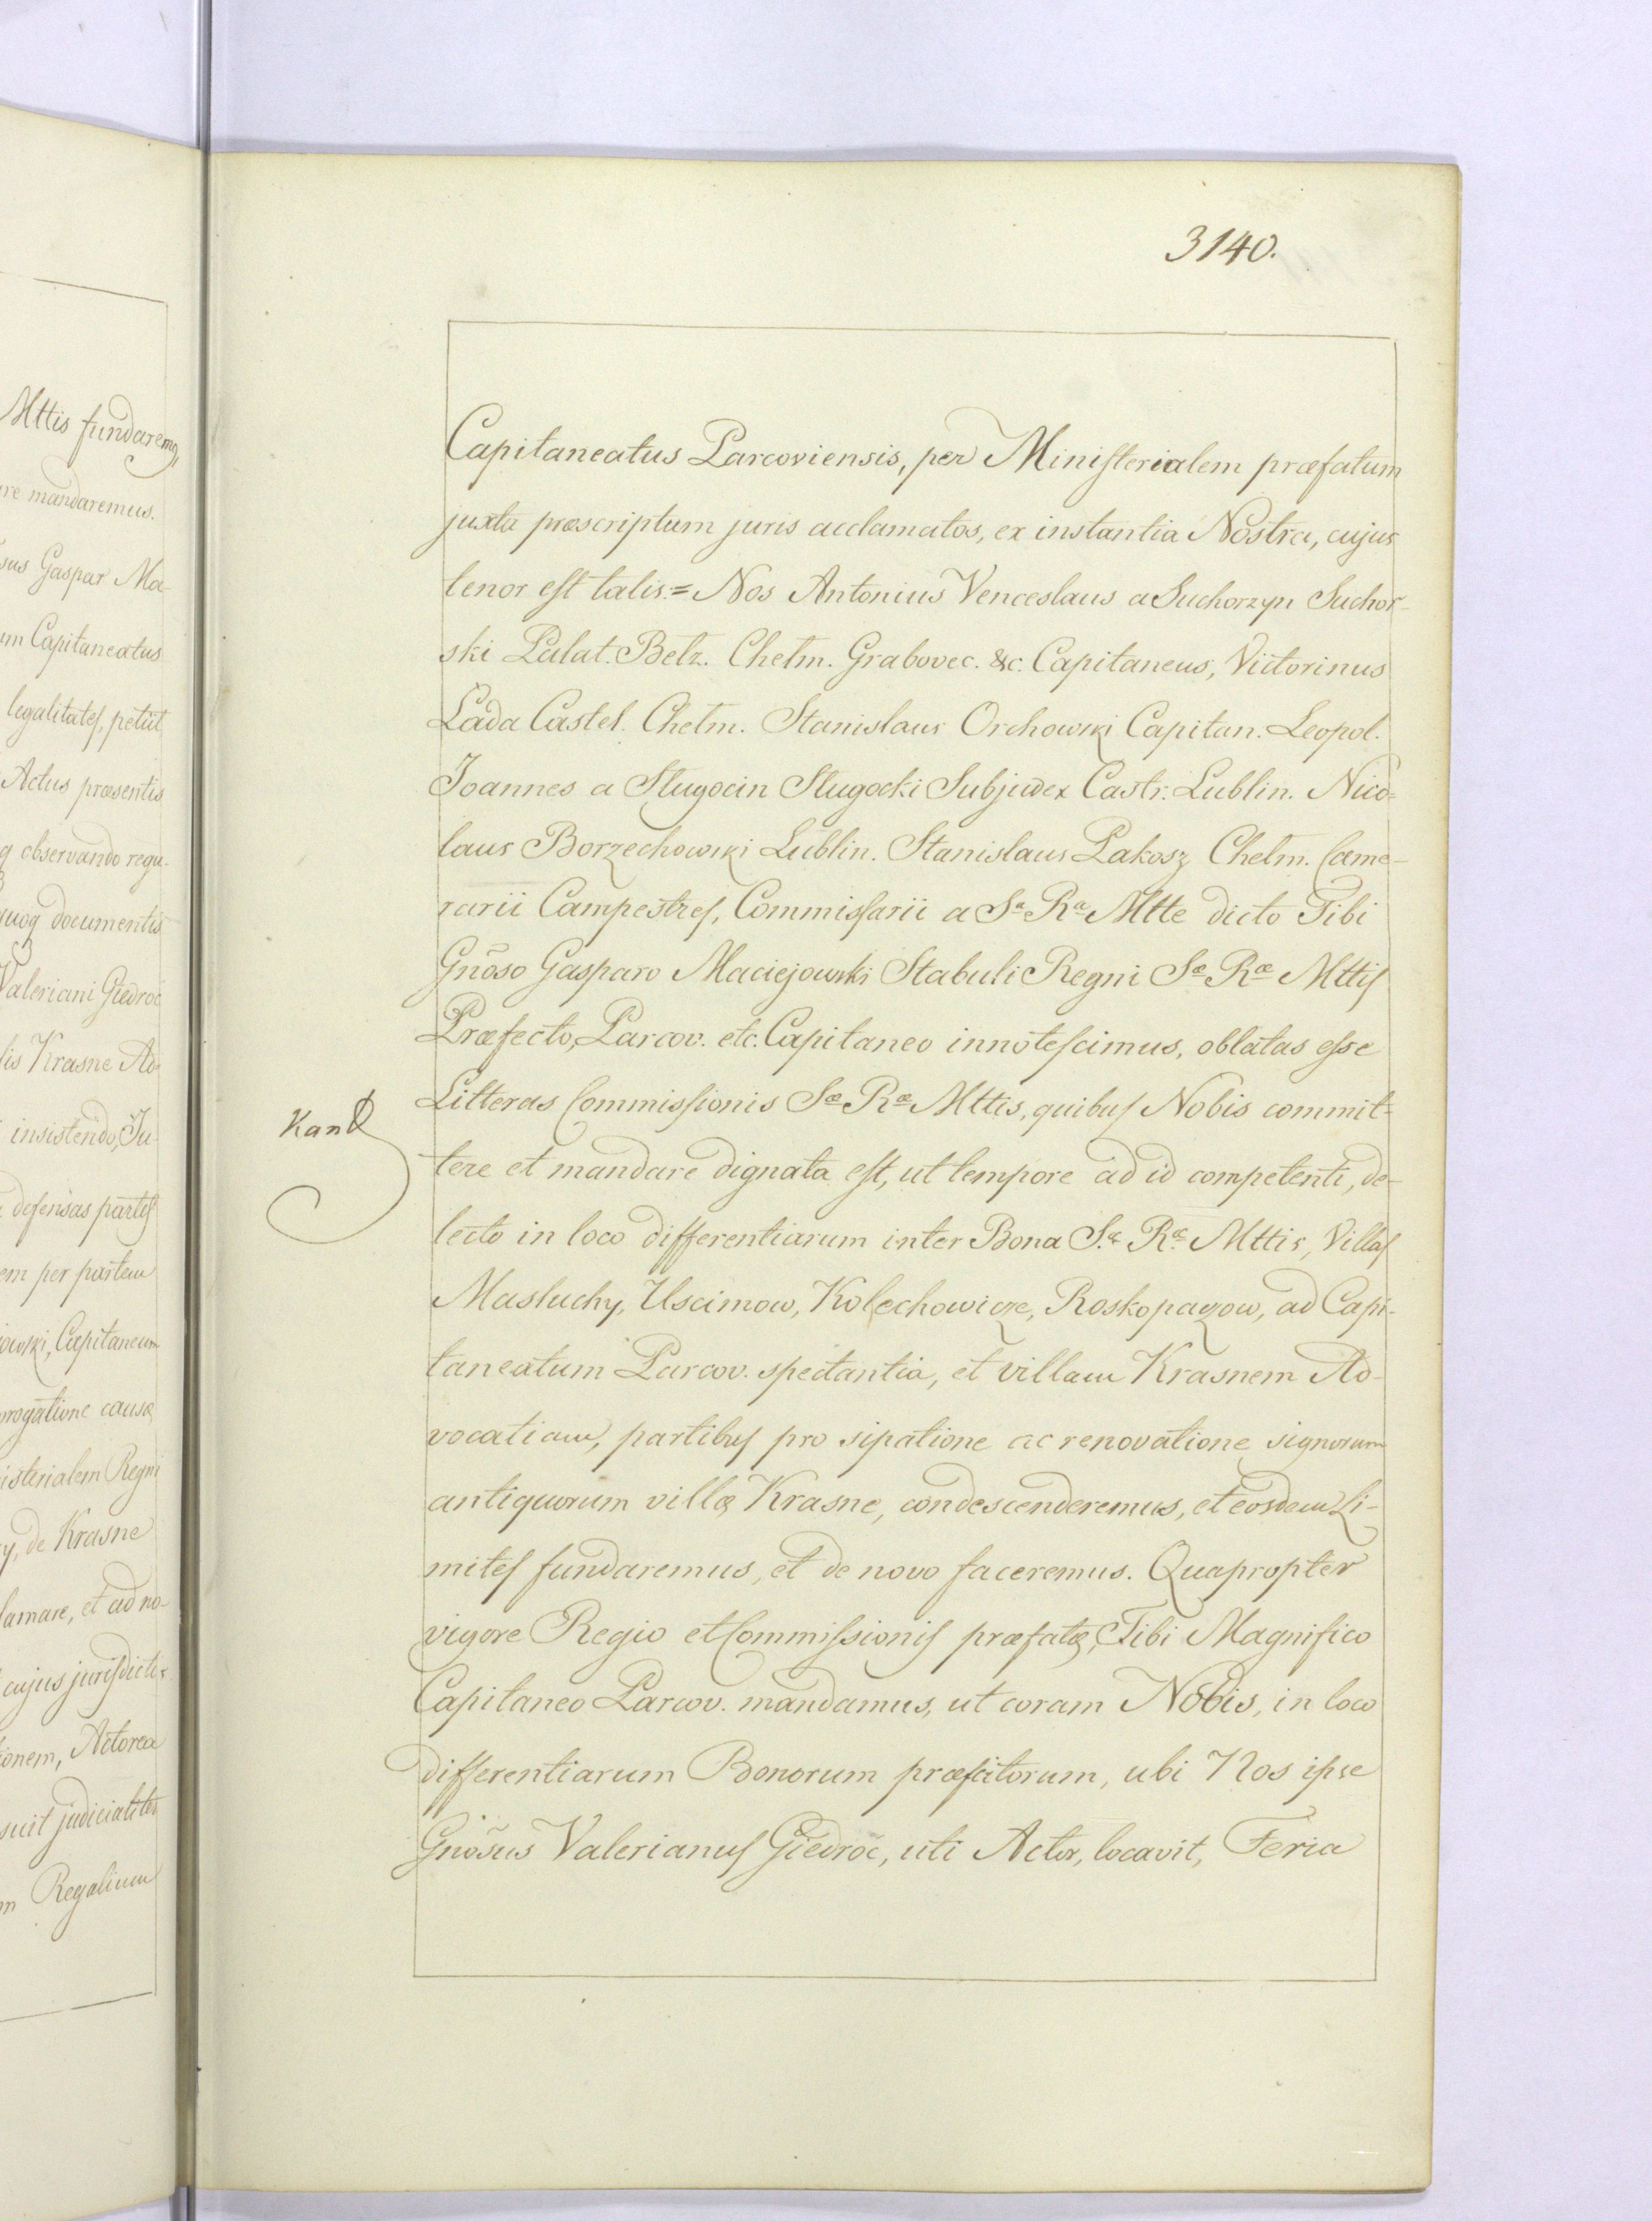 3140.
Capitaneatus Parcoviensis, per Ministerialem præfatum
juxta præscriptum juris acclamatos, ex instantia Nostra, cujus
tenor est talis:= Nos Antonius Venceslaus a Suchorzyn Suchor-
ski Palat. Belz. Chelm. Grabovec. &c. Capitaneus, Victorinus
Łada Castel. Chelm. Stanislaus Orchowski Capitan. Leopol.
Joannes a Sługocin Sługocki Subjudex Castr. Lublin. Nico=
laus Borzechowski Lublin. Stanislaus Pakosz Chelm. Came-
rarii Campestres, Commissarii a Sa Ra Mtte dicto Tibi
Gnõso Gasparo Maciejowski Stabuli Regni Sæ Ræ Mttis
Præfecto, Parcov. etc. Capitaneo innotescimus, oblatas esse
Litteras Commissionis Sæ Ræ Mttis, quibus Nobis commit=
tere et mandare dignata est, ut tempore ad id competenti, de-
lecto in loco differentiarum inter Bona S.æ R.æ Mttis, Villas
Masluchy, Uscimow, Kolechowicze, Roskopaczow, ad Capi-
taneatum Parcov. spectantia, et villam Krasnem Ad-
vocatiam, partibus pro sipatione ac renovatione signorum
antiquorum villæ Krasne, condescenderemus, et eosdem Li-
mites fundaremus, et de novo faceremus. Quapropter
vigore Regio et Commissionis præfatæ, Tibi Magnifico
Capitaneo Parcov. mandamus, ut coram Nobis, in loco
differentiarum Bonorum præfatorum, ubi Nos ipse
Gnõsus Valerianus Giedroc, uti Actor, locavit, Feria
Mttis fundaremq,
re mandaremus.
sus Gaspar Ma-
um Capitaneatus
legalitates, petiit
Actus præsentis
q observando regu-
quoq documentis
Valeriani Giedroc
lis Krasne Ad-
insistendo, Ju-
defensas partes
em per partem
owski, Capitaneum
rogatione causæ
isterialem Regni
y, de Krasne
lamare, et ad no-
cujus jurisdictio-
ionem, Actorea
suit judicialiter
m Regalium